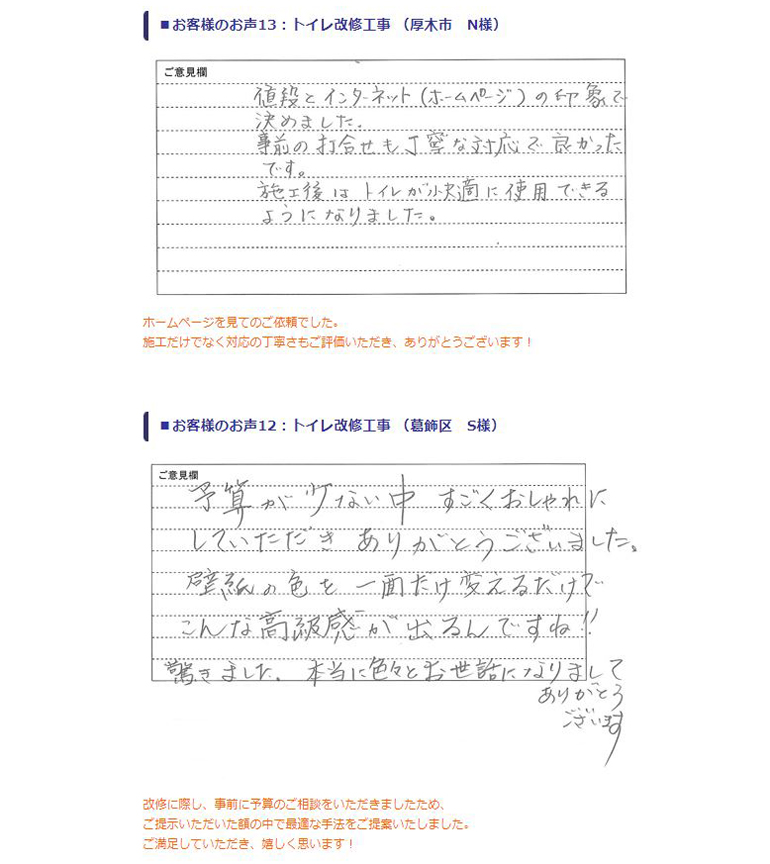 ■お客様のお声13：トイレ改修工事 （厚木市　N様）
ご意見欄
値段とインターネット(ホームページ)の印象で
決めました。
事前の打合せも丁寧な対応で良かった
です。
施工後はトイレが快適に使用できる
ようになりました。
ホームページを見てのご依頼でした。
施工だけでなく対応の丁寧さもご評価いただき、ありがとうございます！
■お客様のお声12：トイレ改修工事 （葛飾区　S様）
ご意見欄
予算が少ない中 すごくおしゃれに
していただき ありがとうございました。
壁紙の色を 一面だけ変えるだけで
こんな高級感が出るんですね!!
驚きました。本当に色々とお世話になりまして
ありがとう
ございます
改修に際し、事前に予算のご相談をいただきましたため、
ご提示いただいた額の中で最適な手法をご提案いたしました。
ご満足していただき、嬉しく思います！